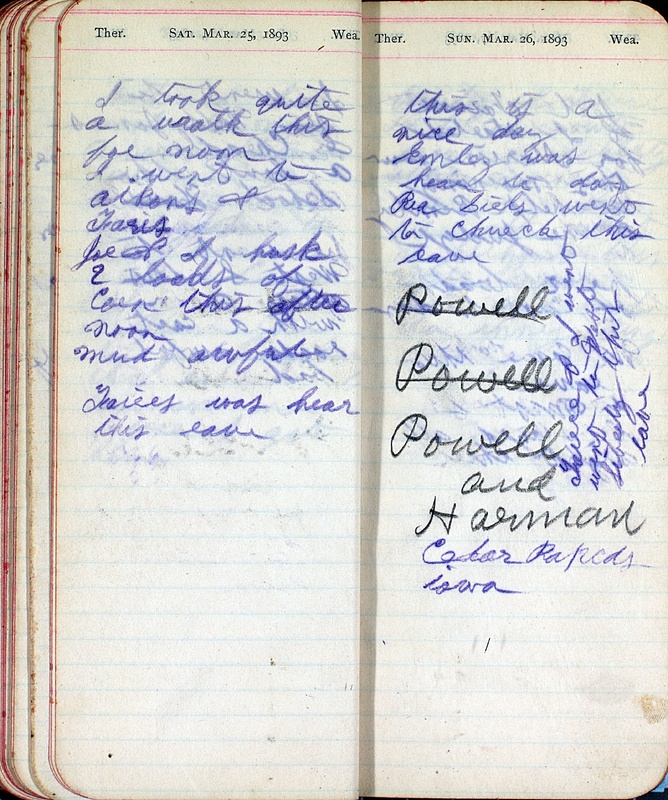 Ther. SAT. MAR. 25, 1893 Wea.
I took quite
a walk this
fore noon
I went to
&
Faris
Joe & I husk
2 loads of
Corn this after
noon
mud awful
Faries was hear
this eave
Ther. SUN. MAR. 26, 1893 Wea.
this is a
nice day
was
hear to day
went
to church this
eave
Powell
Powell
Powell
and
Harman
Cedar Rapids
iowa
& I went
went to
this
eave